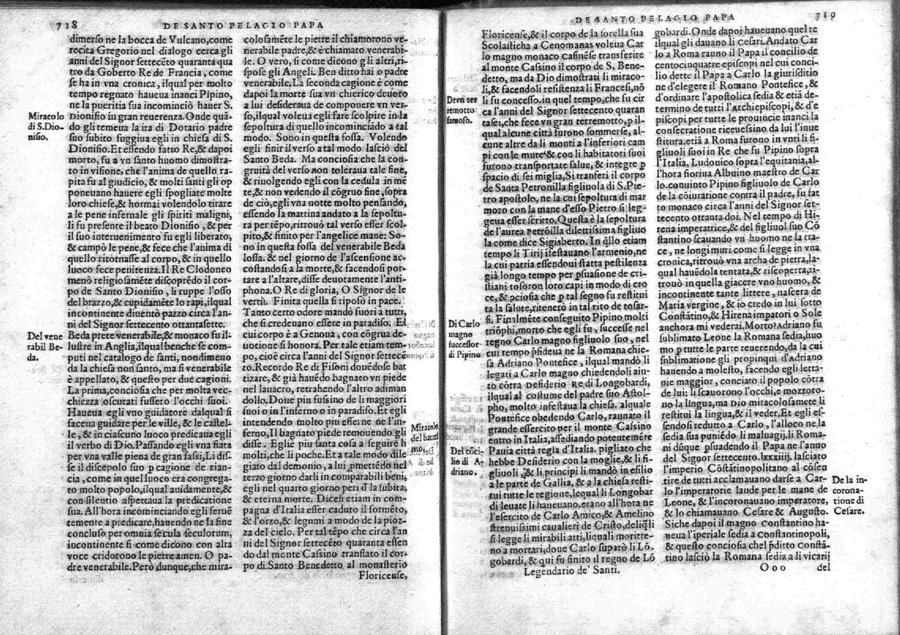 718
DE SANTO PELAGIO PAPA
dimerso ne la bocca de Vulcano, come
recita Gregorio nel dialogo cerca gli
anni del Signor settecēto quaranta qua
tro da Goberto Re de Francia, come
se ha in vna cronica, ilqual per molto
tempo regnato Pipino, inanci Pipino,
ne la pueritia sua incominciò hauer S.
Dionisio in gran reuerenza. Onde quā
do gli temeua la ira di Dotario padre
suo subito fuggiua egli in chiesa di S.
Dionisio. Et essendo fatto Re, & dapoi
morto, fu a vn santo huomo dimostra-
to in visione, che l'anima de quello, ra-
pita fu al giudicio, & molti santi gli op
poneuano hauere egli spogliate molte
loro chiese, & hormai volendolo tirare
a le pene infernale gli spiriti maligni,
li fu presente il beato Dionisio, & per
il suo interuenimento fu egli liberato,
& campò le pene, & fece che l'anima di
quello ritornasse al corpo, & in quello
luoco fece penitenza. Il Re Clodoueo
menò religiosamēte discoprēdo il cor-
po de Santo Dionisio, li ruppe l'osso
del brazzo, & cupidamēte lo rapì, ilqual
incontinente diuentò pazzo circa l'an-
ni del Signor settecento ottantasette.
Beda prete venerabile, & monaco fu il-
lustre in Anglia, ilqual benche se com-
puti nel catalogo de santi, nondimeno
da la chiesa non santo, ma si venerabile
è appellato, & questo per due cagioni.
La prima, conciosia che per molta vec-
chiezza oscurati fussero l'occhi suoi.
Haueua egli vno guidatore dalqual si
faceua guidare per le ville, & le castel-
le, & in ciascuno luoco predicaua egli
il verbo di Dio. Passando egli vna fiata
per vna valle piena de gran sassi, Li dis-
se il discepolo suo p cagione de zian-
cia, come in quel luoco era congrega-
to molto popolo, ilqual auidamente, &
con silentio aspettaua la predicatione
sua. All'hora incominciando egli feruē
temente a predicare, hauendo ne la fine
concluso per omnia secula seculorum,
incontinente si come dicono con alta
voce cridorono le pietre amen. O pa-
dre venerabile. Però dunque, che mira-
Miracolo
di S. Dio-
niso.
Del vene
rabil Be-
da.
colosamēte le pietre il chiamorono ve-
nerabile padre, & è chiamato venerabi-
le. O vero, si come dicono gli altri, ri-
spose gli Angeli. Ben ditto hai o padre
venerabile. La seconda cagione è come
dapoi la morte sua vn cherico diuoto
a lui desideraua de componere vn ver-
so, ilqual voleua egli fare scolpire in la
sepoltura di quello incominciando a tal
modo. Sono in questa fossa. Volendo
egli finir il verso a tal modo lasciò del
Santo Beda. Ma conciosia che la con-
gruità del verso non toleraua tale fine,
& riuolgendo egli con la cedula in mē
te, & non vedendo il cōgruo fine, sopra
de ciò, egli vna notte molto pensando,
essendo la mattina andato a la sepoltu-
ra per tēpo, ritrouò tal verso esser scol-
pito, & finito per l'angelice mane: So-
no in questa fossa del venerabile Beda
l'ossa. & nel giorno de l'ascensione ac-
costandosi a la morte, & facendosi por-
tare a l'altare, disse deuotamente l'anti-
phona. O Re di gloria, O Signor de le
vertù. Finita quella si riposò in pace.
Tanto certo odore mandò fuori a tutti,
che si credeuano essere in paradiso. El
cui corpo è a Genoua, con cōgrua de-
uotione si honora. Per tale etiam tem-
po, cioè circa l'anni del Signor settecē
to. Recordo Re di Fisoni douēdose bat
tizare, & già hauēdo bagnato vn piede
nel lauacro, retrahendo l'altro adiman
dollo. Doue piu fussino de li maggiori
suoi o in l'inferno o in paradiso. Et egli
intendendo molto piu esserne ne l'in-
ferno, Il bagnato piede remouendo gli
disse. Eglie piu santa cosa a seguire li
molti, che li poche. Et a tale modo dile
giato dal demonio, a lui pmettēdo nel
terzo giorno darli in comparabili beni,
egli nel quarto giorno peri d'la subita,
& eterna morte. Dicesi etiam in cam-
pagna d'Italia esser caduto il formēto,
& l'orzo, & legumi a modo de la pioz-
za del cielo. Per tal tēpo che circa l'an
ni del Signor settecēto quaranta essen
do dal monte Cassino translato il corpo
di Santo Benedetto al monasterio
Floricense,
DE SANTO PELAGIO PAPA
719
Floricense, & il corpo de la sorella sua
Scolasticha a Cenomanas voleua Car
lo magno monaco casinēse transferire
al monte Cassino il corpo de S. Bene-
detto, ma da Dio dimostrati li miraco-
li, & facendoli resistenza li Francesi, nō
li fu concesso, in quel tempo, che fu cir
ca l'anni del Signor settecento quaran
ta sei, fece vn gran terremotto, p il
qual alcune città furono sommerse, al-
cune altre da li monti a l'inferiori cam
pi con le mure & con li habitatori suoi
furono transportate salue, & integre p
spacio di sei miglia, Si transferì il corpo
de Santa Petronilla figliuola di S. Pie-
tro apostolo, ne la cui sepoltura di mar
moro con la mane d'esso Pietro si leg-
geua esser scritto. Questa è la sepoltura
de l'aurea petroilla dilettissima figliuo
la come dice Sigisberto. In qllo etiam
tempo li Tirij infestauano l'armenio, ne
la cui patria essendoui stata pestilenza
già longo tempo per psuasione de cri-
stiani tosoron loro capi in modo de cro
ce, & pciosia che p tal segno fu restitui
ta la salute, ritenerò in tal rito de tosar-
si. Finalmēte conseguito Pipino molti
triōphi, morto che egli fu, successe nel
regno Carlo magno figliuolo suo, nel
cui tempo psideua ne la Romana chie-
sa Adriano Pontefice, ilqual mandò li
legati a Carlo magno chiedendoli aiu-
to cōtra Desiderio re di Longobardi,
ilqual al costume del padre suo Astol-
pho, molto infestaua la chiesa. alquale
Pontefice obedendo Carlo, raunato il
grande essercito per il monte Cassino
entro in Italia, assediando potentemēte
Pauia città regia d'Italia, pigliato che
hebbe Desiderio con la moglie, & li fi-
gliuoli, & li principi li mandò in esilio
a le parte de Gallia, & a la chiesa resti-
tui tutte le regione, lequal li Longobar
di leuate li haueuano, erano all'hora ne
l'essercito de Carlo Amico, & Amelino
strenuissimi caualieri de Cristo, deliqli
si legge li mirabili atti, liquali moritte-
no a mortari, doue Carlo supärò li Lō
gobardi, & qui fu finito il regno de Lō
Legendario de' Santi.
Deun ter
remotto
famoso.
Di Carlo
magno
successor-
di Pipino
Miracolo
del battes
mo,
Del cōci-
lio di A-
driano.
gobardi. Onde dapoi haueuano quel re
ilqual gli dauano li Cesari. Andato Car
lo a Roma rauno il Papa il concilio de
centocinquanta episcopi nel cui conci
lio dette il Papa a Carlo la giurisditio
ne d'elegere il Romano Pontefice, &
d'ordinare l'apostolica sedia & etiā de-
termino de tutti l'archiepiscopi, & d'e-
piscopi per tutte le prouincie inanci la
consecratione riceuessino da lui l'inue
stitura. etiā a Roma furono in vnti li fi-
gliuoli suoi in Re che fu Pipino sopra
l'Italia, Ludouico sopra l'equitania, al-
l'hora fioriua Albuino maestro de Car
lo. conuinto Pipino figliuolo de Carlo
de la cōiuratione contra il padre, fu fat
to monaco circa l'anni del Signor set-
tecento ottanta doi. Nel tempo di Hi-
rena imperatrice, & del figliuol suo Cō
stantino scauando vn huomo ne la tra-
ce, ne longhi muri come si legge in vna
cronica, ritrouò vna archa de pietra, la-
qual hauēdola tentata, & riscoperta, ri-
trouò in quella giacere vno huomo, &
incontinente tante littere, nascera de
Maria vergine, & io credo in lui sotto
Costātino, & Hirena impatori o Sole
anchora mi vederai. Morto Adriano fu
sublimato Leone la Romana sedia, huo
mo p tutte le parte reuerendo, da la cui
sublimatione gli propinqui d'Adriano
hauendo a molesto, facendo egli letta-
nie maggior, conciato il popolo cōtra
de lui: li scauorono l'occhi, e mozzoro-
no la lingua, ma Dio miracolosamēte li
restituì la lingua, & il veder. Et egli es-
sendosi redutto a Carlo, l'alloco ne la
sedia sua puniēdo li maluaggi. li Roma-
ni dūque psuadendo il Papa ne l'anno
del Signor settecento. lxxxiiij. lasciato
l'imperio Cōstātinopolitano al cōsen
tire de tutti acclamauano darse a Car-
lo l'imperatorie laude per le mane de
Leone, & l'incoronauano imperatore,
& lo chiamauano Cesare & Augusto.
Siche dapoi il magno constantino ha-
neua l'iperiale sedia a constantinopoli,
& questo conciosia che l pditto Constā
tino lasciò la Romana sedia a li vicarij
Ooo
del
De la in-
corona-
tione di
Cesare.